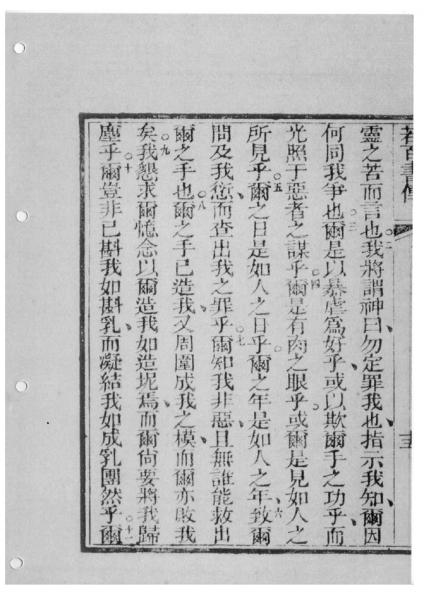 若百書傳
十五
靈之苦而言也○二我將謂神曰、勿定罪我也、指示我知、爾因
何同我爭也○三爾是以暴虐爲好乎、或以欺爾手之功乎、而
光照于惡者之謀乎○四爾是有肉之眼乎。或爾是見如人之
所見乎○五爾之日是如人之日乎。爾之年是如人之年、○六致爾
問及我愆、而查出我之罪乎○七爾知我非惡、且無誰能救出
爾之手也○八爾之手已造我、又周圍成我之模、而爾亦敗我
矣○九我懇求爾憶念以爾造我如造坭焉、而爾尚要將我歸
塵乎○十爾豈非已斟我如斟乳、而凝結我如成乳團然乎○十一爾